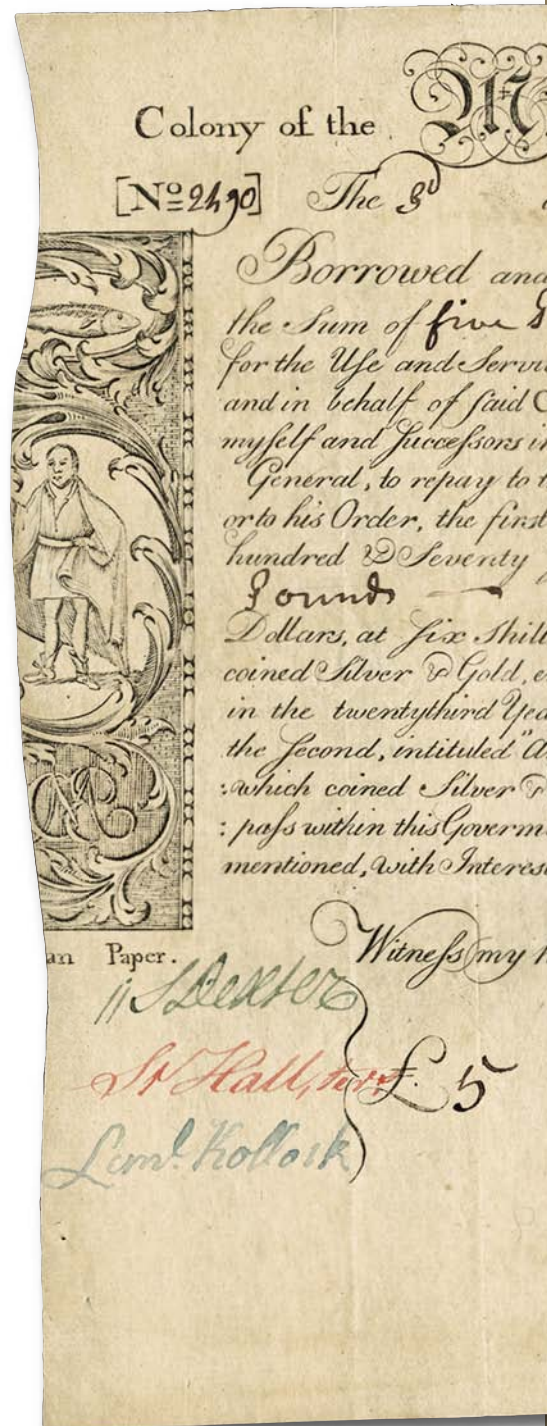 Colony of the M
[No 2490] The 3d
Borrowed and
the Sum of five
for the Use and Servi
and in behalf of said C
myself and Successors in
General, to repay to t
or to his Order, the first
hundred & Seventy
Pounds
Dollars, at six shill
coined Silver & Gold, e
in the twentythird Yea
the Second, intituled "A
:which coined Silver &
: pass within this Governm
mentioned, with Interest
Witness my h
an Paper.
S Dexter
Hall,
Leml. Kollock
£. 5